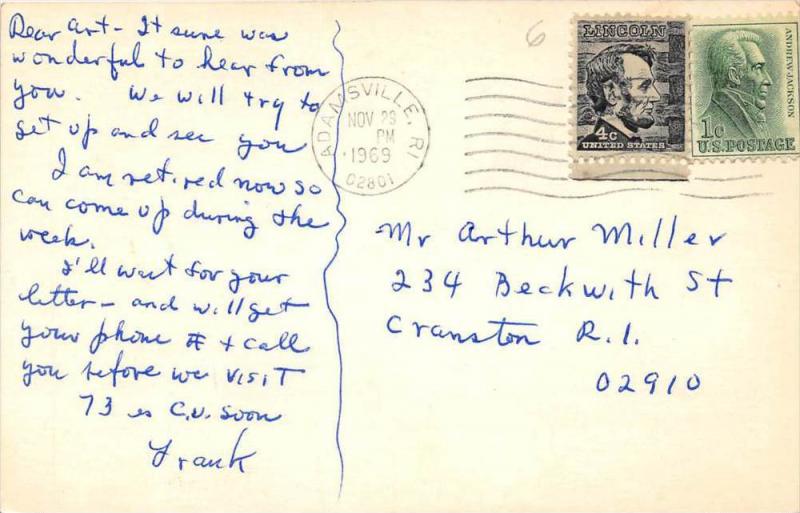 Dear Art - It sure was
wonderful to hear from
you. We will try to
get up and see you
I am retired now so
can come up during the
week.
I'll wait for your
letter - and will get
your phone # + call
you before we visit
73 es C.U. soon
Frank
6
ADAMSVILLE, RI
NOV 29
PM
1969
02801
LINCOLN
4c
UNITED STATES
ANDREW JACKSON
1c
U.S. POSTAGE
Mr Arthur Miller
234 Beckwith St
Cranston R.I.
02910